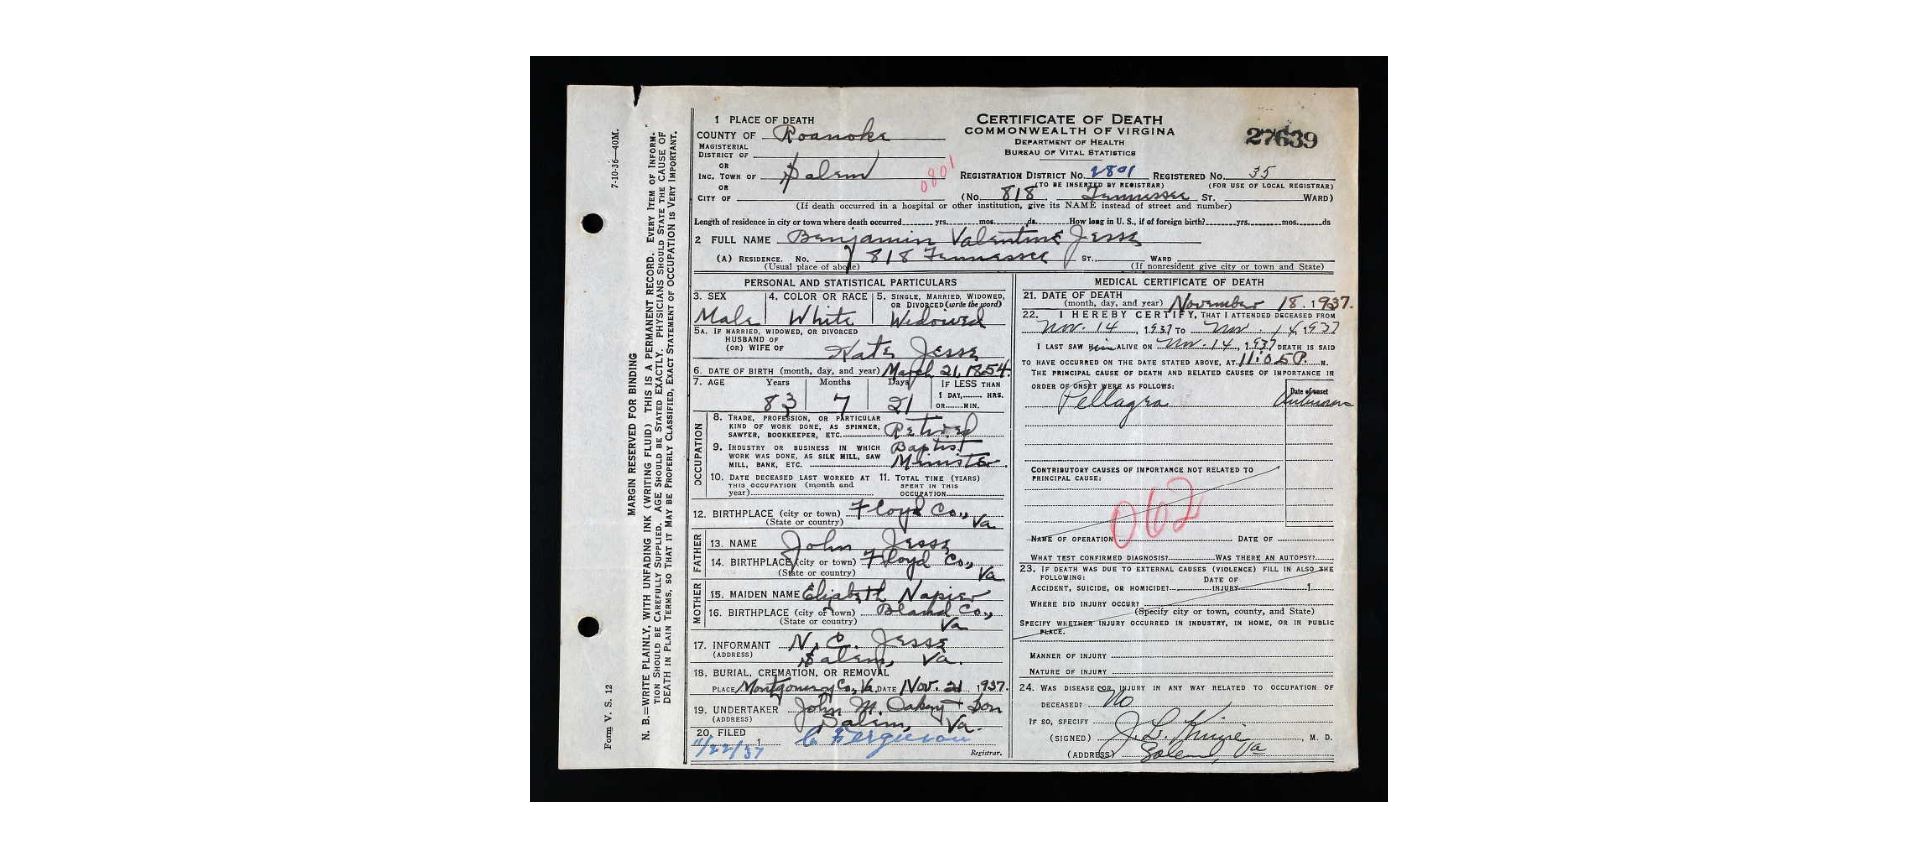 7-10-36—40M.
Form V. S. 12
MARGIN RESERVED FOR BINDING
N. B.—WRITE PLAINLY, WITH UNFADING INK (WRITING FLUID) THIS IS A PERMANENT RECORD. EVERY ITEM OF INFORM-
TION SHOULD BE CAREFULLY SUPPLIED. AGE SHOULD BE STATED EXACTLY. PHYSICIANS SHOULD STATE THE CAUSE OF
DEATH IN PLAIN TERMS, SO THAT IT MAY BE PROPERLY CLASSIFIED. EXACT STATEMENT OF OCCUPATION IS VERY IMPORTANT.
CERTIFICATE OF DEATH
COMMONWEALTH OF VIRGINIA
DEPARTMENT OF HEALTH
BUREAU OF VITAL STATISTICS
27639
1 PLACE OF DEATH
COUNTY OF Roanoke
MAGISTERIAL
DISTRICT OF
OR
INC. TOWN OF Salem
0801
OR
CITY OF
REGISTRATION DISTRICT NO. 2801 REGISTERED NO. 35
(TO BE INSERTED BY REGISTRAR) (FOR USE OF LOCAL REGISTRAR)
(No. 818 Tennessee ST. WARD)
(If death occurred in a hospital or other institution, give its NAME instead of street and number)
Length of residence in city or town where death occurred yrs. mos. ds. How long in U. S., if of foreign birth? yrs. mos. ds
2 FULL NAME Benjamin Valentine Jesse
(A) RESIDENCE. NO. 818 Tennessee ST. WARD
(Usual place of abode) (If nonresident give city or town and State)
PERSONAL AND STATISTICAL PARTICULARS
3. SEX Male
4. COLOR OR RACE White
5. SINGLE, MARRIED, WIDOWED,
OR DIVORCED (write the word)
Widowed
5A. IF MARRIED, WIDOWED, OR DIVORCED
HUSBAND OF
(OR) WIFE OF Kate Jesse
6. DATE OF BIRTH (month, day, and year) March 21, 1854.
7. AGE Years Months Days IF LESS THAN
1 DAY, HRS.
83 7 21 OR MIN.
OCCUPATION
8. TRADE, PROFESSION, OR PARTICULAR
KIND OF WORK DONE, AS SPINNER,
SAWYER, BOOKKEEPER, ETC. Retired
9. INDUSTRY OR BUSINESS IN WHICH
WORK WAS DONE, AS SILK MILL, SAW
MILL, BANK, ETC. Baptist Minister
10. DATE DECEASED LAST WORKED AT
THIS OCCUPATION (month and
year)
11. TOTAL TIME (YEARS)
SPENT IN THIS
OCCUPATION
12. BIRTHPLACE (city or town) Floyd Co., Va
(State or country)
FATHER
13. NAME John Jesse
14. BIRTHPLACE (city or town) Floyd Co., Va
(State or country)
MOTHER
15. MAIDEN NAME Elizabeth Napier
16. BIRTHPLACE (city of town) Bland Co., Va
(State or country)
17. INFORMANT N. C. Jesse
(ADDRESS) Salem, Va.
18. BURIAL, CREMATION, OR REMOVAL
PLACE Montgomery Co., Va. DATE Nov. 21, 1937.
19. UNDERTAKER John M. Oakey + Son
(ADDRESS) Salem, Va.
20. FILED
11/22/37 C Ferguson
Registrar.
MEDICAL CERTIFICATE OF DEATH
21. DATE OF DEATH
(month, day, and year) November 18. 1937.
22. I HEREBY CERTIFY, THAT I ATTENDED DECEASED FROM
Nov. 14, 1937 TO Nov. 14 1937
I LAST SAW him ALIVE ON Nov. 14, 1937 DEATH IS SAID
TO HAVE OCCURRED ON THE DATE STATED ABOVE, AT 11:05 P. M.
THE PRINCIPAL CAUSE OF DEATH AND RELATED CAUSES OF IMPORTANCE IN
ORDER OF ONSET WERE AS FOLLOWS:
Date of onset
Pellagra Unknown
CONTRIBUTORY CAUSES OF IMPORTANCE NOT RELATED TO
PRINCIPAL CAUSE:
062
NAME OF OPERATION DATE OF
WHAT TEST CONFIRMED DIAGNOSIS? WAS THERE AN AUTOPSY?
23. IF DEATH WAS DUE TO EXTERNAL CAUSES (VIOLENCE) FILL IN ALSO THE
FOLLOWING:
DATE OF
ACCIDENT, SUICIDE, OR HOMICIDE? INJURY 1
WHERE DID INJURY OCCUR?
(Specify city or town, county, and State)
SPECIFY WHETHER INJURY OCCURRED IN INDUSTRY, IN HOME, OR IN PUBLIC
PLACE.
MANNER OF INJURY
NATURE OF INJURY
24. WAS DISEASE OR INJURY IN ANY WAY RELATED TO OCCUPATION OF
DECEASED? No
IF SO, SPECIFY
(SIGNED) J. L. Kinzie, M. D.
(ADDRESS) Salem, Va